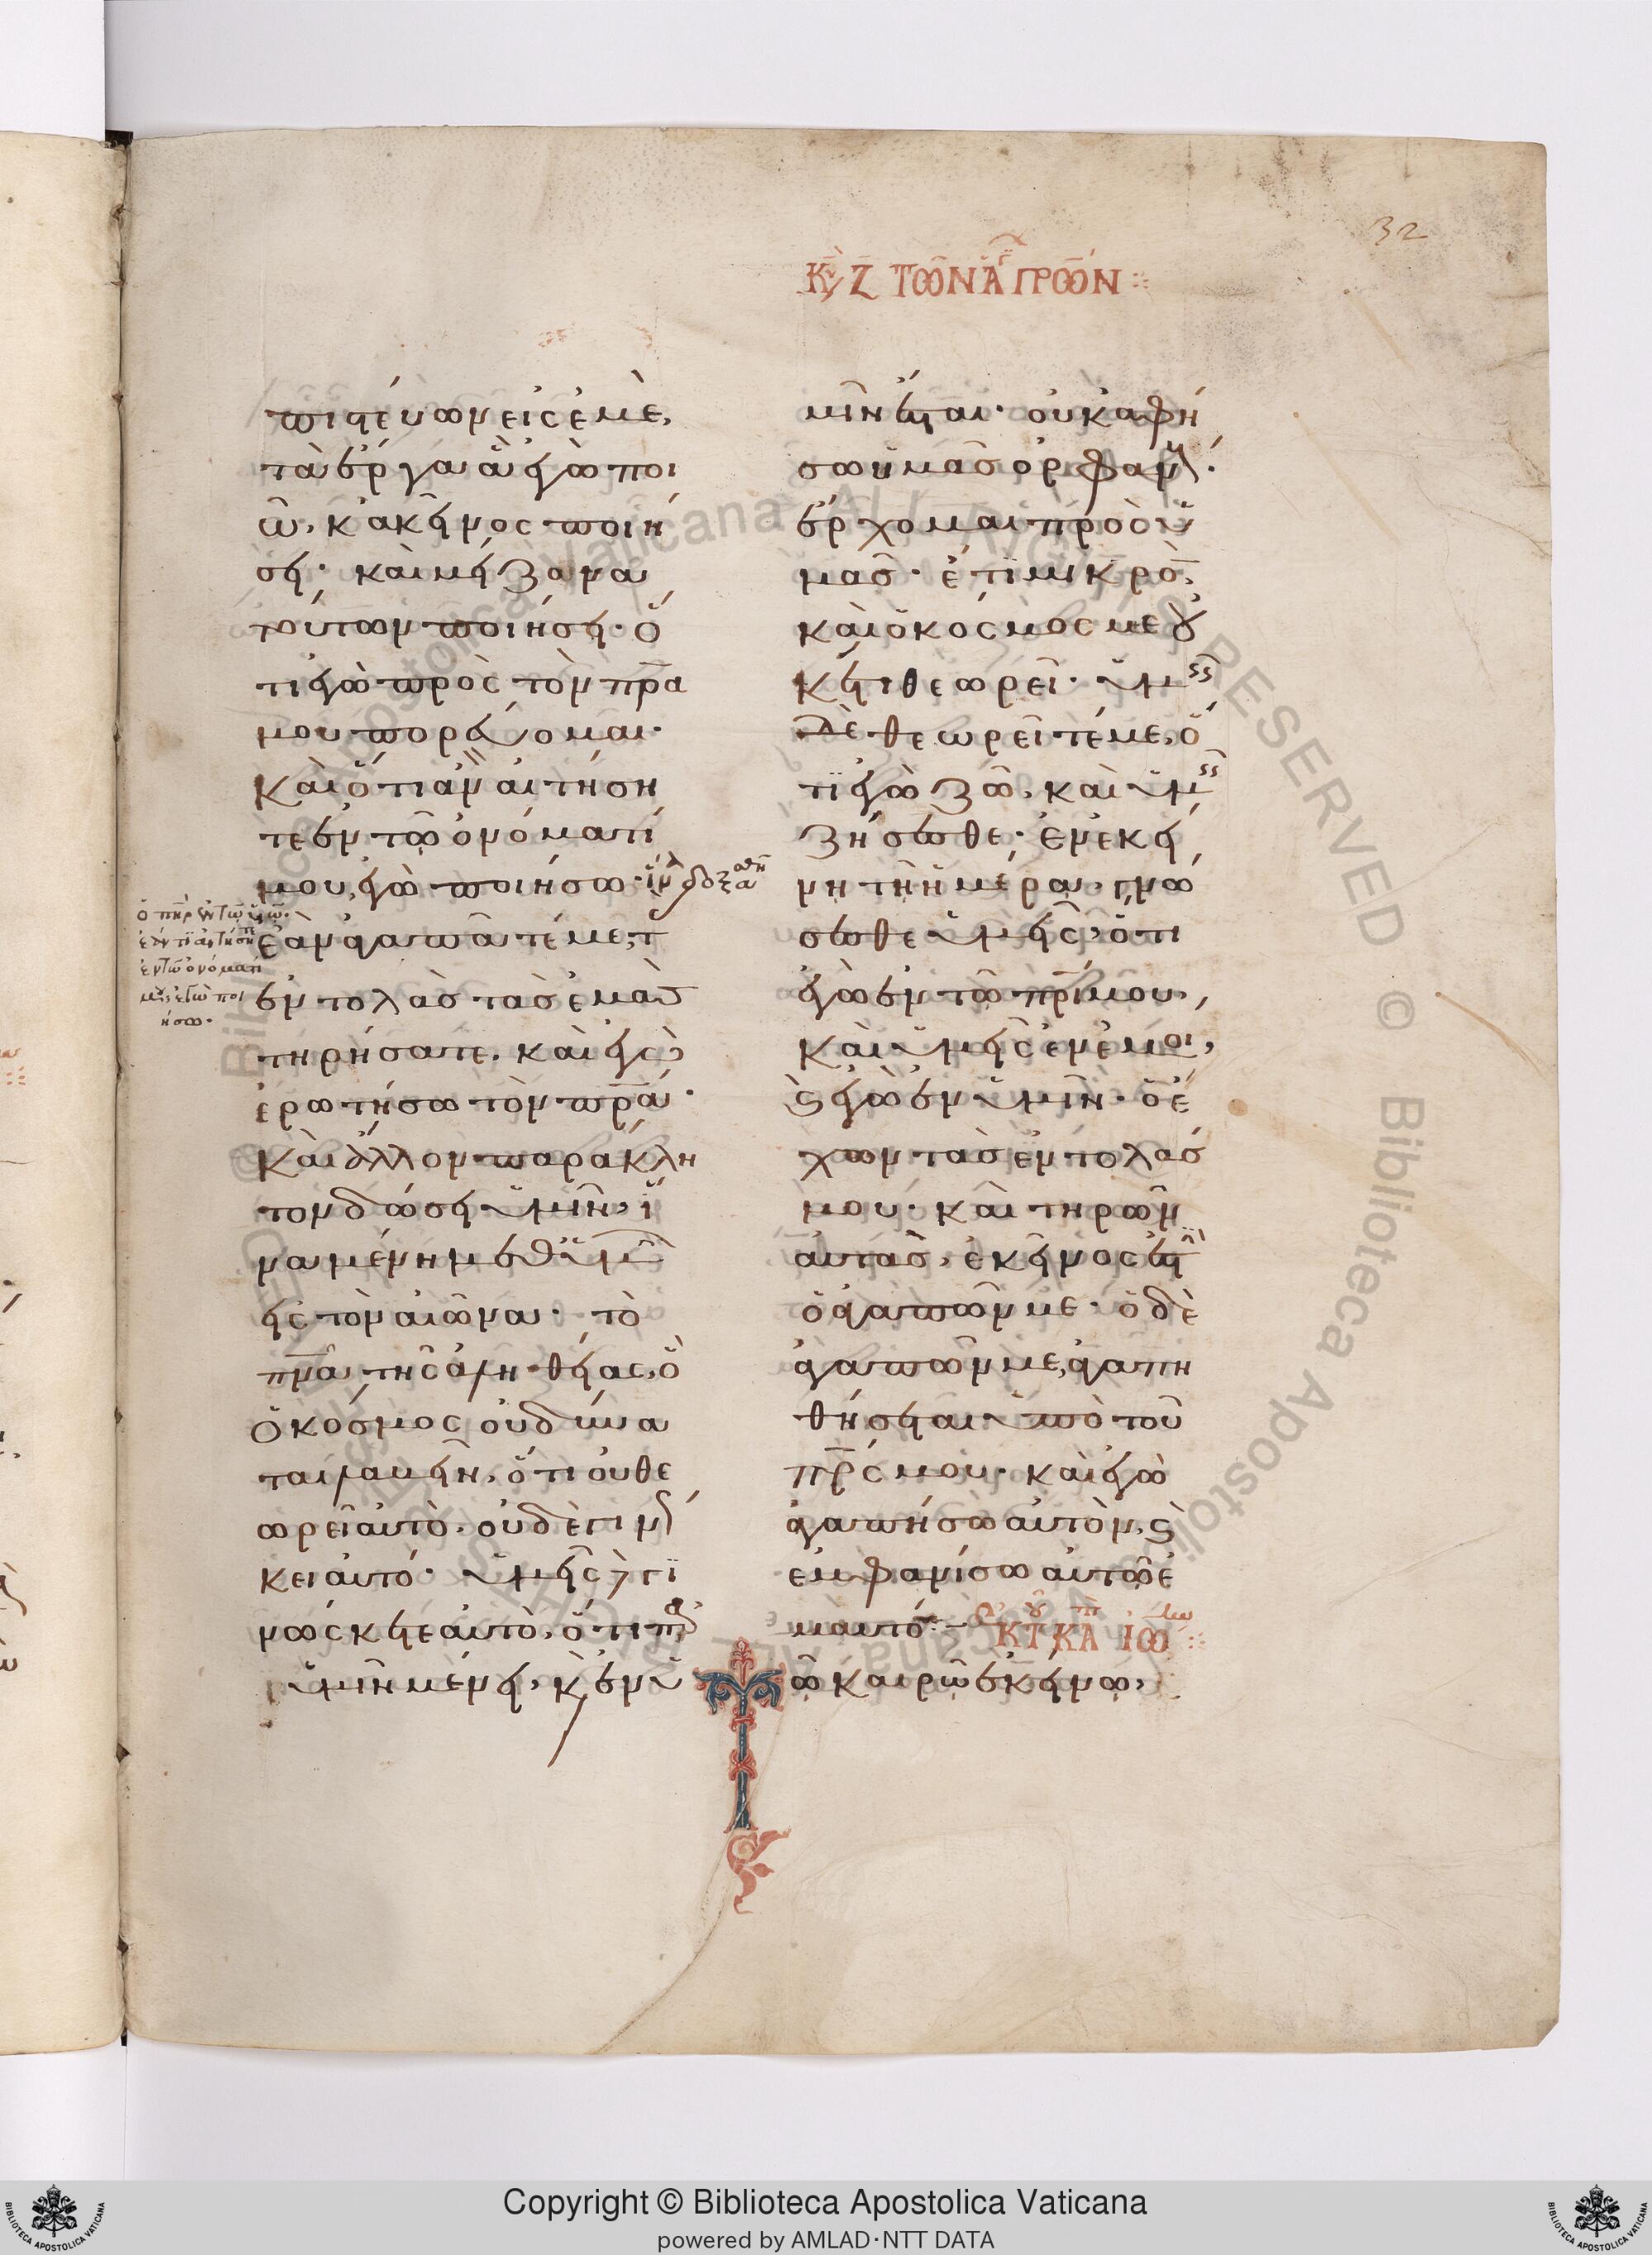 32
ΚΥ Ζ ΤΩΝ ΑΓ ΠΡΩΝ
πιστεύων εἰς ἐμὲ,
τὰ ἔργα ἃ ἐγὼ ποι
ῶ, κἀκεῖνος ποιή
σει· καὶ μείζονα
τούτων ποιήσει· ὅ
τι ἐγὼ πρὸς τὸν πρα
μου πορεύομαι·
καὶ ὅτι ἂν αἰτήση
τε ἐν τῶ ὀνόματί
μου, ἐγὼ ποιήσω· ἵν δοξασθῆ
ὁ πηρ ἐν τῶ υω·
ἐάν τι αἰτήσητε
ἐν τῶ ὀνόματί
μου, ἐγὼ ποι
ήσω·
Ἐὰν ἀγαπᾶτέ με, τ
ἐντολὰς τὰς ἐμὰς
τηρήσατε. καὶ ἐγὼ
ἐρωτήσω τὸν πρα·
καὶ ἄλλον παράκλη
τον δώσει ὑμῖν, ἵ
να μένη μεθ ὑμῶν
εἰς τὸν αἰῶνα· τὸ
πνα τῆς ἀληθείας, ὃ
ὁ κόσμος οὐ δύνα
ται λαβεῖν, ὅτι οὐ θε
ωρεῖ αὐτὸ. οὐδὲ γινώ
σκει αὐτό· ὑμεῖς δὲ γι
νώσκετε αὐτὸ, ὅτι παρ
ὑμῖν μένει, κ ἐν ὑ
μῖν ἔσται· οὐκ ἀφή
σω ὑμᾶς ὀρφανούς·
ἔρχομαι πρὸς ὑ
μᾶς· ἔτι μικρὸν,
καὶ ὁ κόσμος με οὐ
κέτι θεωρεῖ· ὑμεῖς
δὲ θεωρεῖτέ με, ὅ
τι ἐγὼ ζῶ, καὶ ὑμεῖς
ζήσεσθε· Ἐν ἐκεί
νη τῆ ἡμέρα, γνώ
σεσθε ὑμεῖς, ὅτι
ἐγὼ ἐν τῶ πρι μου,
καὶ ὑμεῖς ἐν ἐμοὶ,
ϛ ἐγὼ ἐν ὑμῖν· ὁ ἔ
χων τὰς ἐντολάς
μου· καὶ τηρῶν
αὐτὰς, ἐκεῖνος ἐστιν
ὁ ἀγαπῶν με· ὁ δὲ
ἀγαπῶν με, ἀγαπη
θήσεται ὑπὸ τοῦ
πρς μου· καὶ ἐγὼ
ἀγαπήσω αὐτὸν, ϛ
ἐμφανίσω αὐτῶ ἐ
μαυτόν. ΚΤ ΚΑ ΙΩ
Τῶ καιρῶ ἐκείνω,
Copyright © Biblioteca Apostolica Vaticana
powered by AMLAD·NTT DATA